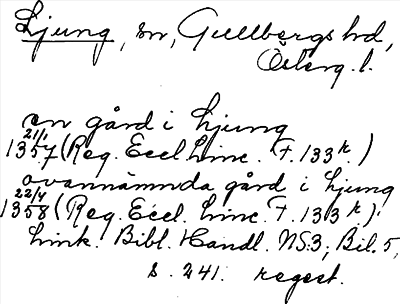 Ljung, sn, Gullbergs hd,
Österg. l.
en gård i Ljung
21/1
1357 (Reg. Eccl. Linc. F. 133r.)
ovannämnda gård i Ljung
22/4
1358 (Reg. Eccl. Linc. F. 133r);
Link. Bibl. Handl. NS:3, Bil. 5,
s. 241. regest.